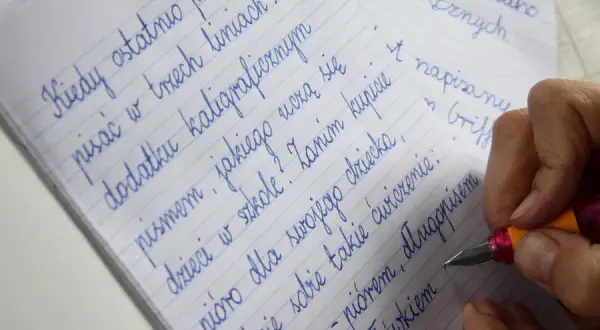 Kiedy ostatnio
pisać w trzech liniach?
dodatku kaligraficznym
pismem, jakiego uczą się
dzieci w szkole? Zanim kupicie
pióro dla swojego dziecka,
sobie takie ćwiczenie:
piórem, długopisem
cznych
napisany